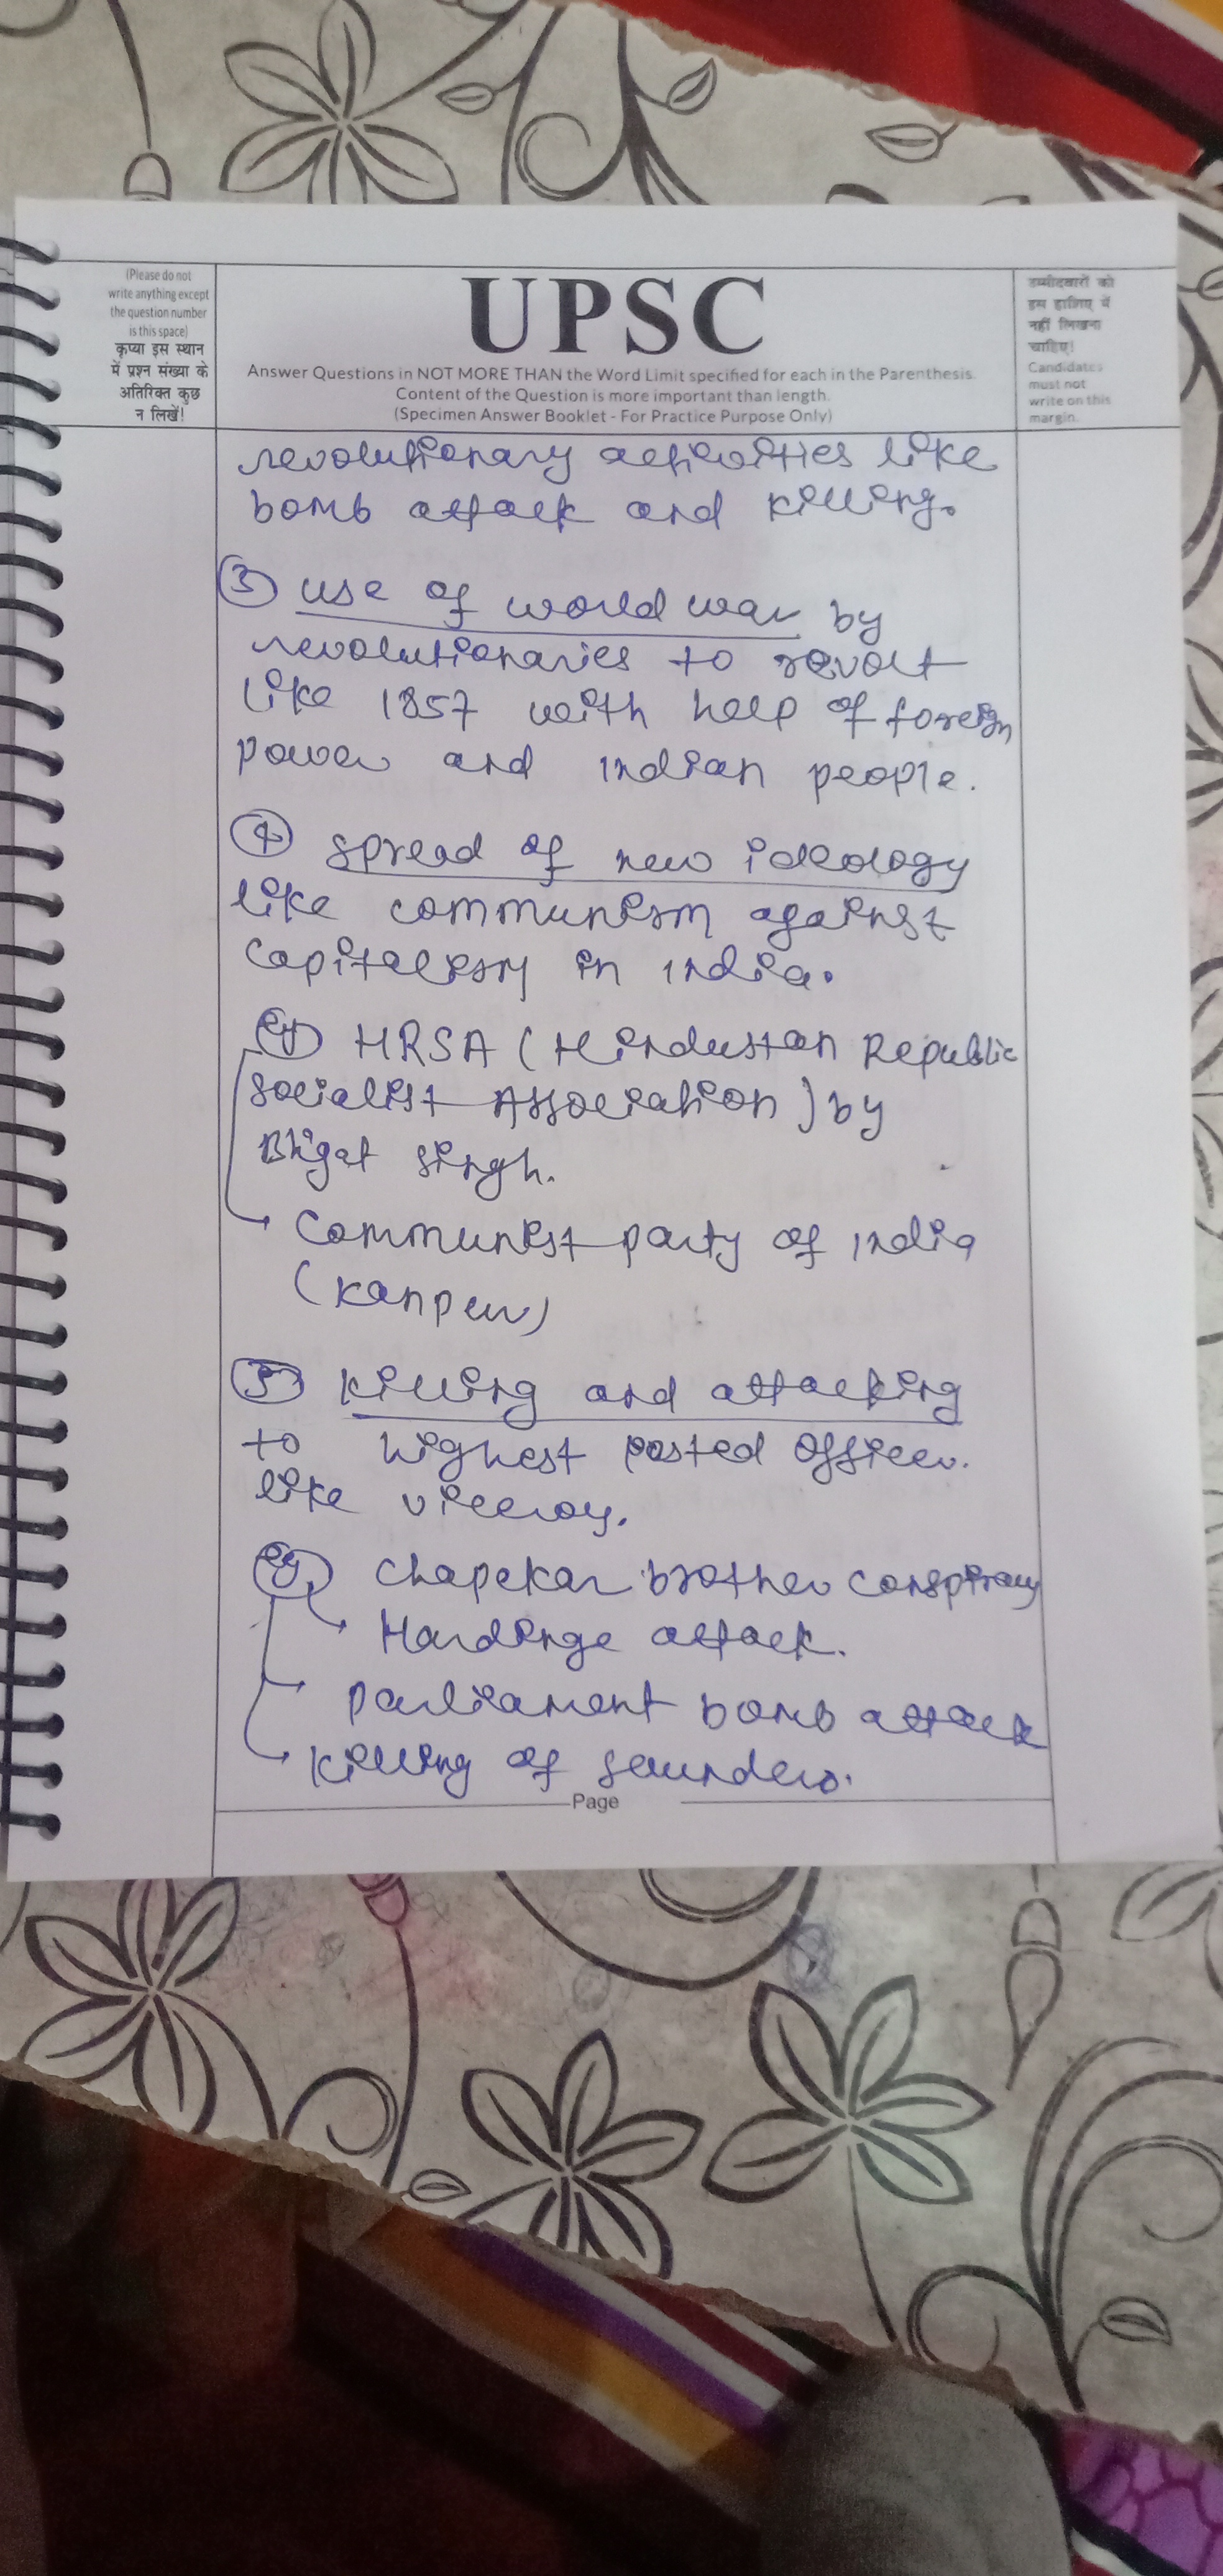 (Please do not
write anything except
the question number
is this space)
कृप्या इस स्थान
में प्रश्न संख्या के
अतिरिक्त कुछ
न लिखें!
UPSC
Answer Questions in NOT MORE THAN the Word Limit specified for each in the Parenthesis.
Content of the Question is more important than length.
(Specimen Answer Booklet - For Practice Purpose Only)
उम्मीदवारों को
इस हाशिए में
नहीं लिखना
चाहिए!
Candidates
must not
write on this
margin.
revolutionary activities like
bomb attack and killing.
③ use of world war by
revolutionaries to revolt
like 1857 with help of foreign
power and indian people.
④ spread of new ideology
like communism against
capitalism in india.
eg HRSA (Hindustan Republic
socialist Association) by
Bhgat singh.
→ Communist party of india
(kanpur)
⑤ killing and attacking
to highest posted officer.
like viceroy.
eg chapekar brother conspiracy
→ Hardinge attack.
→ parliament bomb attack
→ killing of saunders.
Page